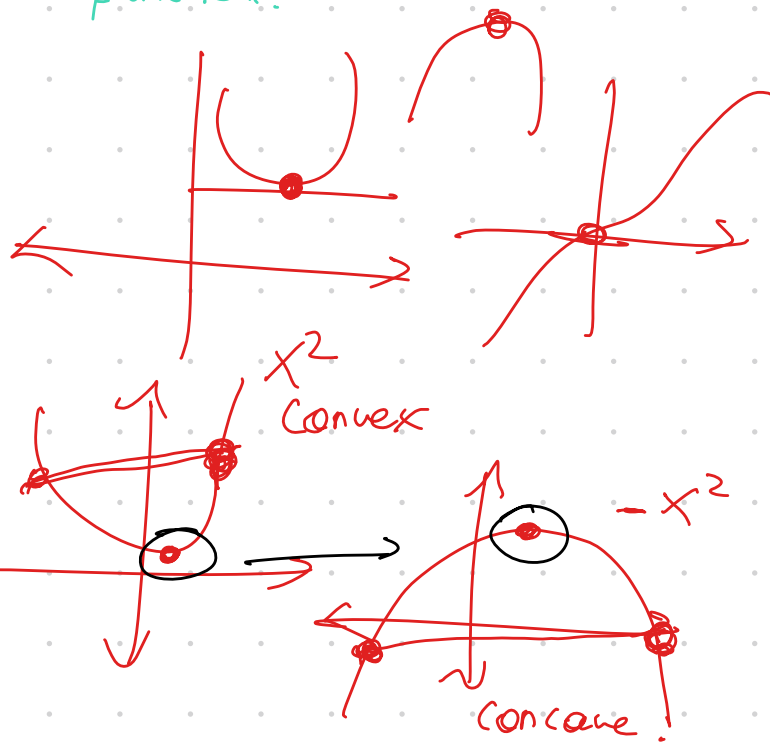 x²
Convex
- x²
Concave.